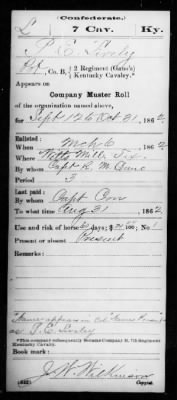 (Confederate.)
L 7 Cav. Ky.
P. E. Lively
Pvt, Co. B, 2 Regiment (Gano's) Kentucky Cavalry.*
Appears on
Company Muster Roll
of the organization named above,
for Sept 12 to Oct 31, 1862.
Enlisted:
When Mch 6, 1862
Where Mill, Tex.
By whom Capt R. M. Gano
Period 3
Last paid:
By whom Capt
To what time Aug 31, 1862
Use and risk of horse days; $ No. 1
Present or absent Present
Remarks:
Name appears on
as P. E. Lively
*This company subsequently became Company, 7th Regiment Kentucky Cavalry.
Book mark:
J. W. Wilkinson
(642) Copyist.